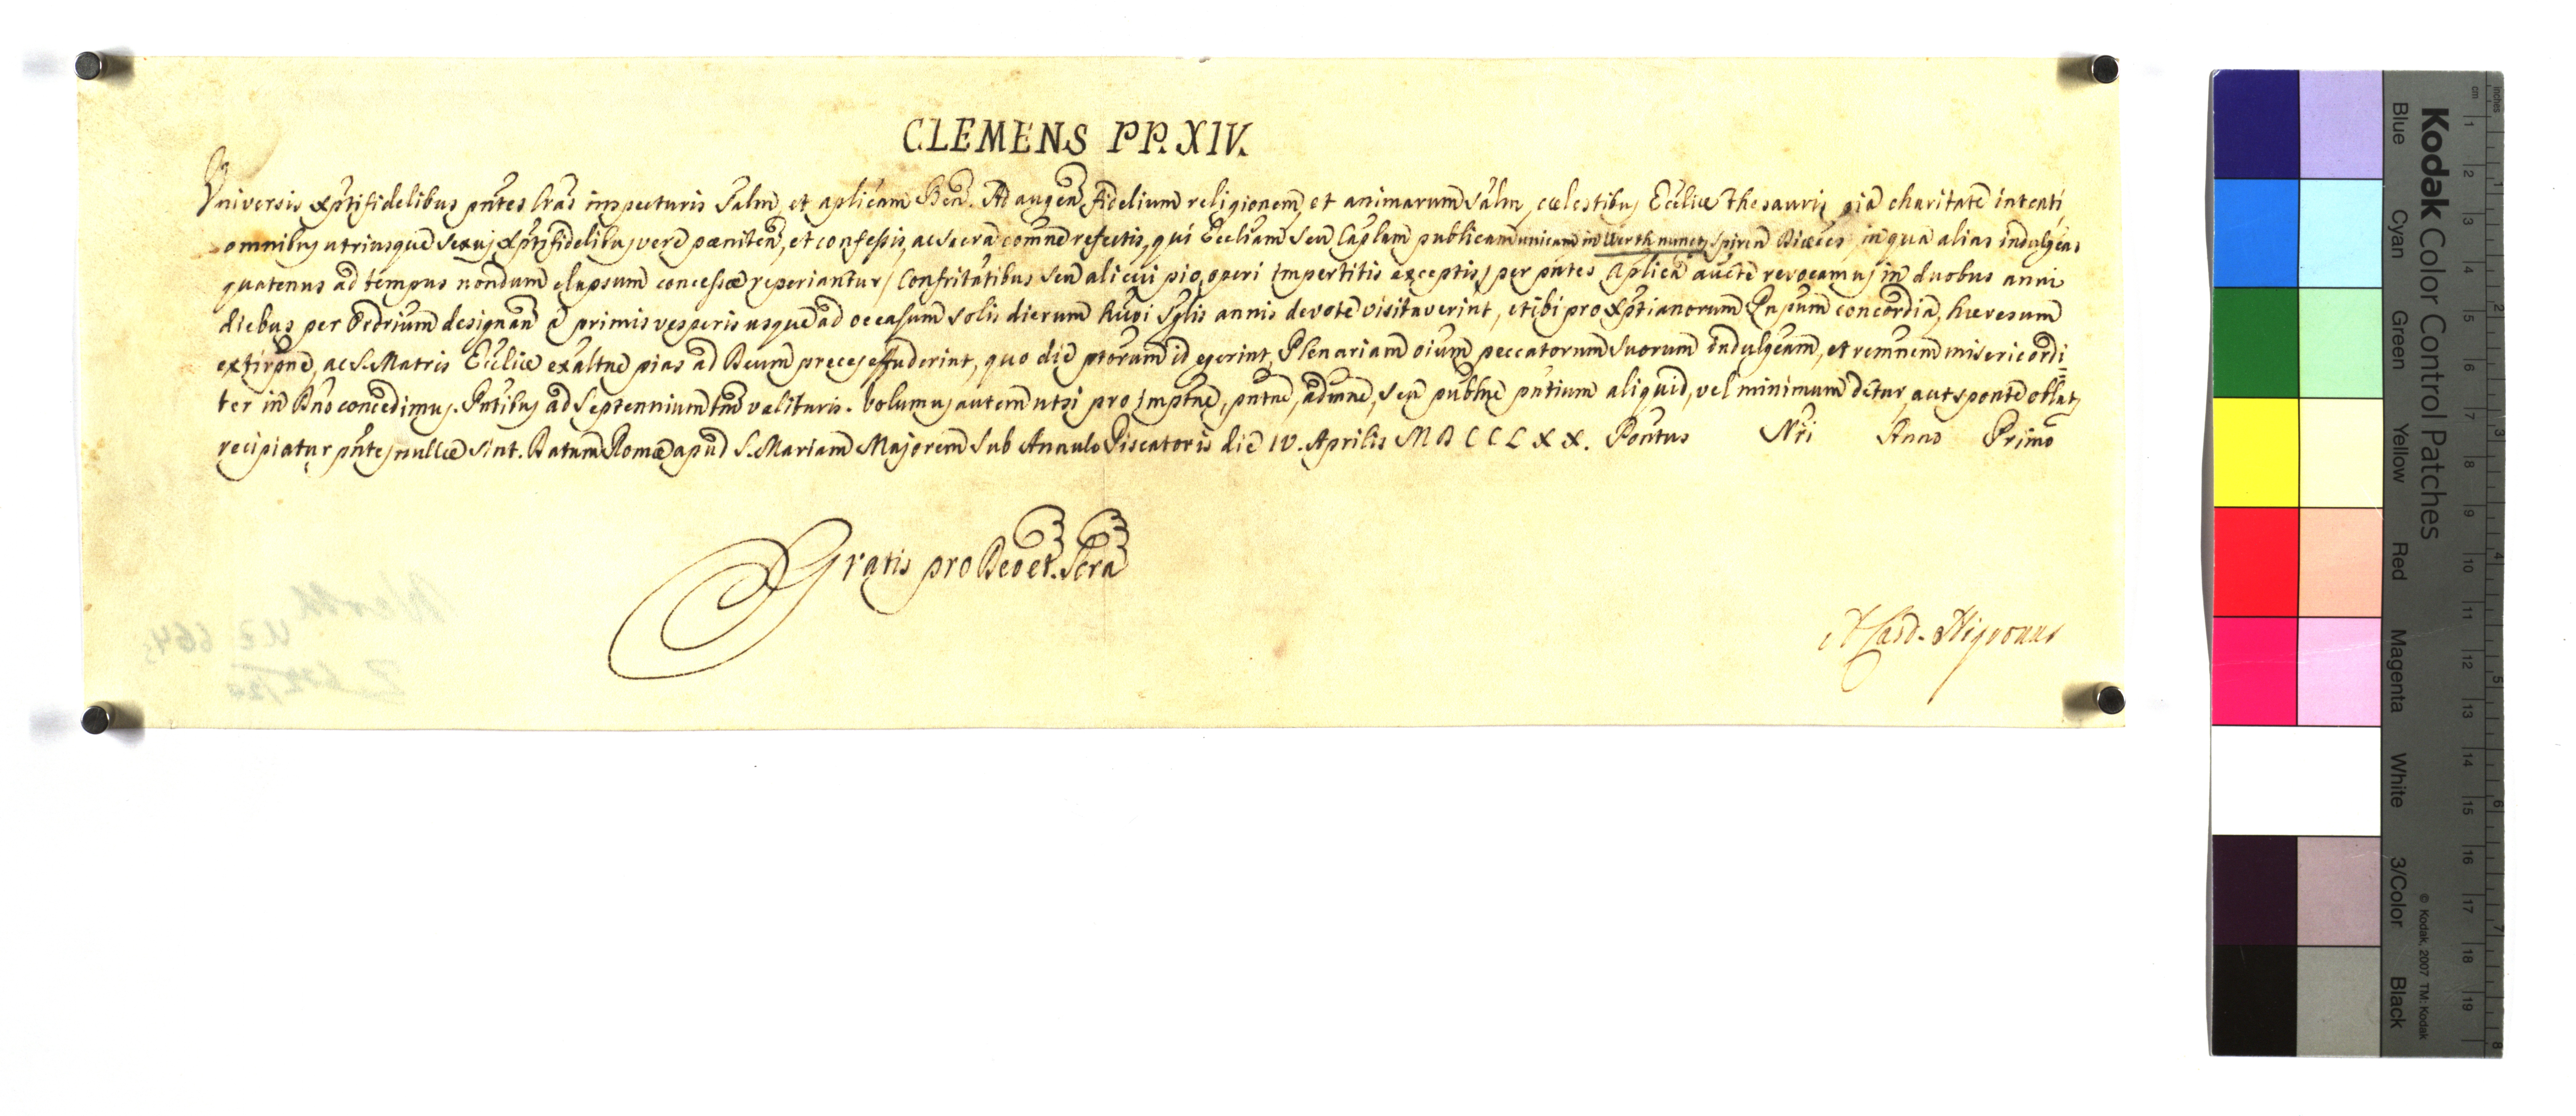 CLEMENS PP. XIV.
Universis Xpti fidelibus pñtes lras inspecturis Salm, et aplicam Ben. Ad augen fidelium religionem, et animarum Salm, cælestibus Ecclie thesauris pia charitate intenti
omnibus utriusque sexus Xpti fidelibus vere pœniten, et confessis, ac Sacra comne refectis, qui Eccliam seu Caplam publicam unicam in Werth nuncup Spiren Diæces in qua alias indulgeae
quatenus ad tempus nondum elapsum concessæ reperiantur / Confritatibus seu alicui pio operi impertitis exceptis / per pñtes aplica aucte revocamus in duobus anni
diebus per Ordrium designan e primis vesperis usque ad occasum solis dierum hujoi Sglis annis devote visitaverint, et ibi pro Xptianorum Pnpum concordia, hæresum
extirpne, ac S. Matris Ecclie exaltne pias ad Deum preces effuderint, quo die ptorum id egerint, Plenariam oium peccatorum suorum Indulgeam, et remnem misericordi=
ter in Dno concedimus. Pntibus ad Septennium tm valituris. Volumus autem ut si pro imptne, pntne, admne, seu publne pntium aliquid, vel minimum detur, aut sponte oblat,
recipiatur pñtes nullæ sint. Datum Romæ apud S. Mariam Majorem Sub Annulo Piscatoris die IV. Aprilis MDCCLXX. Pontus Nri Anno Primo
Gratis pro Deo et Scra
A Card. Nigronus
Werth
U 2 664